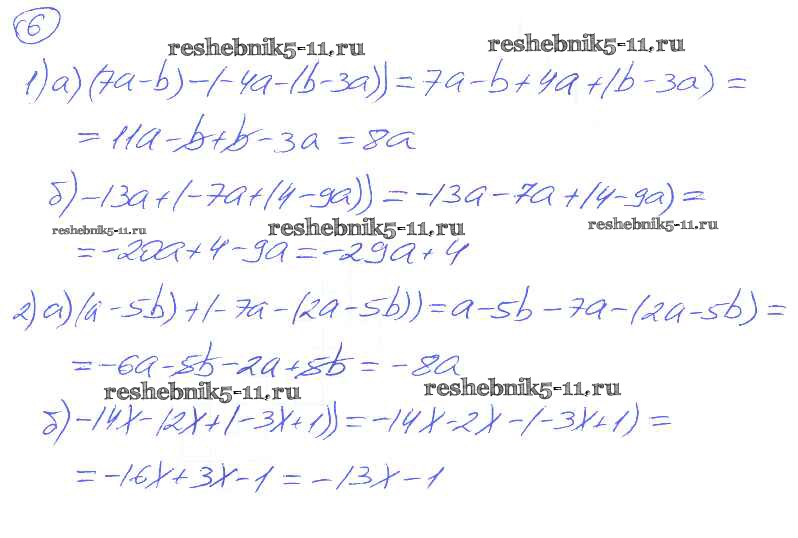 6
reshebnik5-11.ru reshebnik5-11.ru
1) а) (7a-b)-(-4a-(b-3a))=7a-b+4a+(b-3a)=
=11a-b+b-3a=8a
б) -13a+(-7a+(4-9a))=-13a-7a+(4-9a)=
reshebnik5-11.ru reshebnik5-11.ru reshebnik5-11.ru
=-20a+4-9a=-29a+4
2) а) (a-5b)+(-7a-(2a-5b))=a-5b-7a-(2a-5b)=
=-6a-5b-2a+5b=-8a
reshebnik5-11.ru reshebnik5-11.ru
б) -14x-(2x+(-3x+1))=-14x-2x-(-3x+1)=
=-16x+3x-1=-13x-1